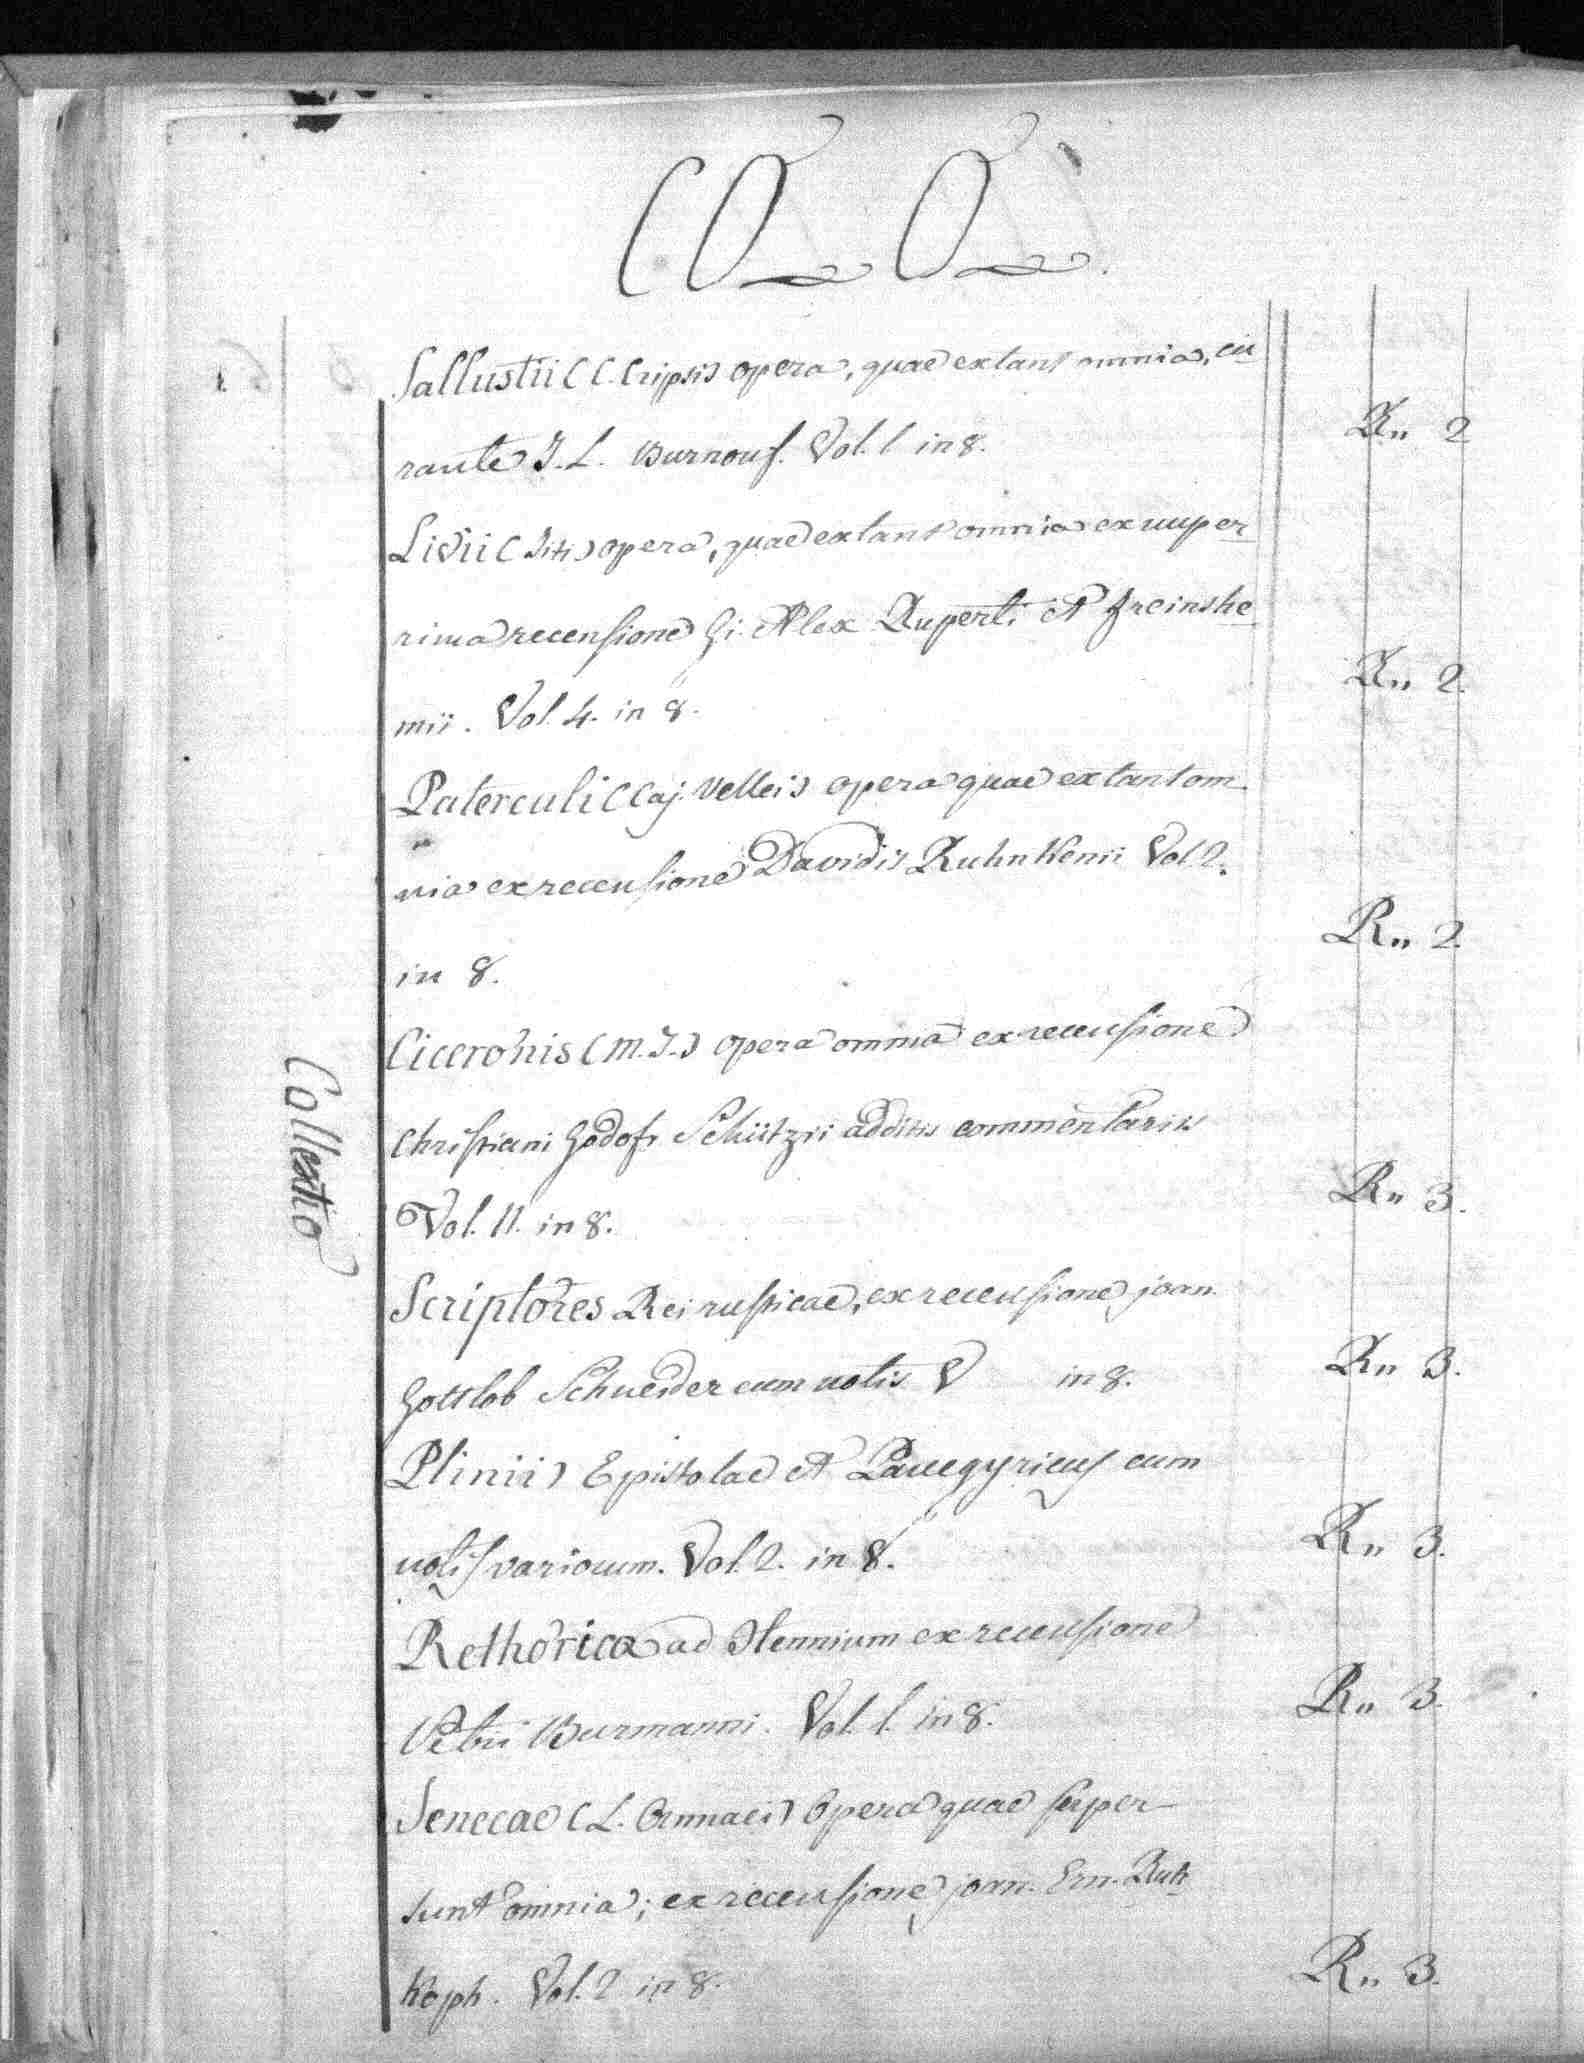 CO O.
Sallustii (C. Cripsi) opera, quae extant omnia, cu
rante J. L. Burnouf. Vol. 1 in 8.
R„ 2
Livii (Titi) opera, quae extant omnia ex uuper
rima recensione Gi. Alex Ruperti et Freinshe
mii. Vol. 4. in 8.
R„ 2.
Paterculi (Caj. Vellei) opera quae extant om
nia ex recensione Davidis Ruhnkenii Vol 2.
in 8.
R„ 2.
Ciceronis (M. T.) opera omnia ex recensione
Christiani Godofr. Schützii additis commentariis
Vol. 11. in 8.
R„ 3.
Scriptores Rei rusticae, ex recensione joan.
Gottlob Schneider cum notis V in 8.
R„ 3.
Plinii) Epistolae et Panegyricus cum
notis variorum. Vol. 2. in 8.
R„ 3.
Rethorica ad Herennium ex recensione
Petri Burmanni. Vol. 1. in 8.
R„ 3.
Senecae (L. Annaei) Opera quae super-
sunt omnia; ex recensione joan. Ern. Ruh
koph. Vol. 2 in 8.
R„ 3.
Collextio